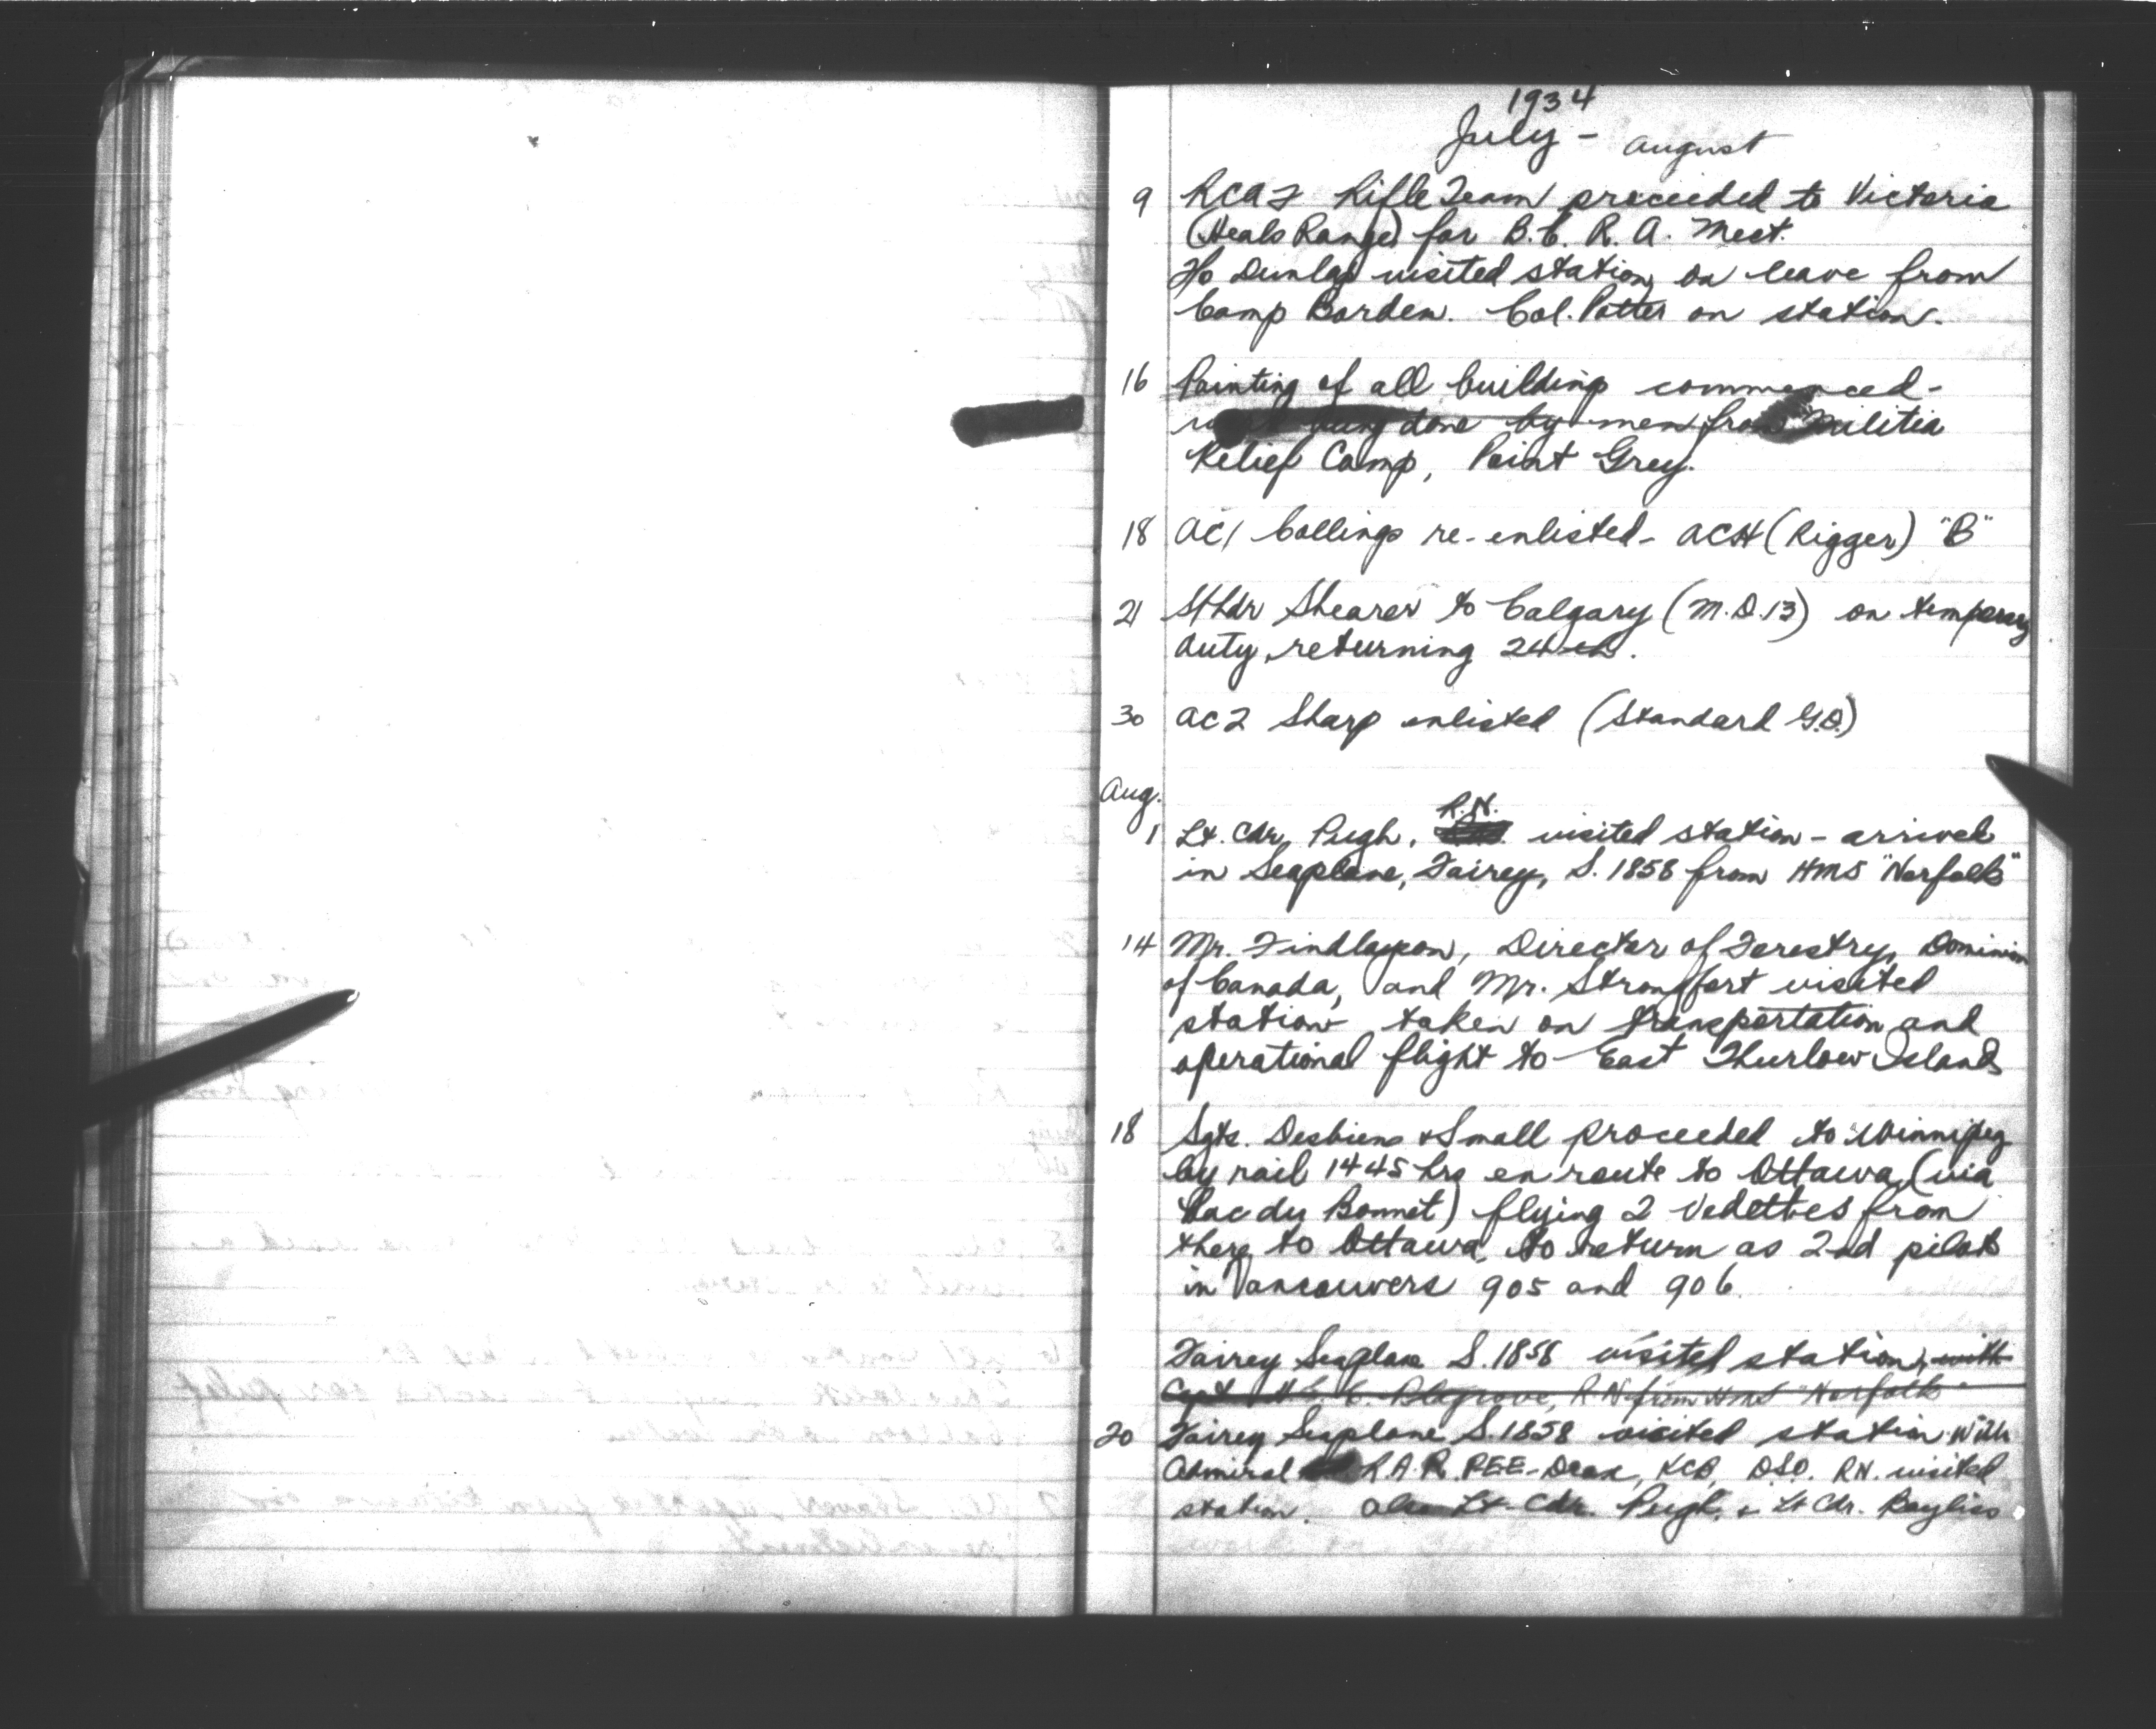 1934
July - August
9 RCAF Rifle Team proceeded to Victoria
(Heals Range) for B.C. R. A. Meet.
F/o Dunlap visited station on leave from
Camp Borden. Col. Potter on station.
16 Painting of all building commenced -
being done by men from Militia
Relief Camp, Point Grey.
18 AC1 Collings re-enlisted - (Rigger) "B"
21 Shearer to Calgary (M.D.13) on temporary
duty, returning 24th.
30 AC2 Sharp enlisted (Standard G.D.)
Aug.
R.N.
1 Lt. Cdr. Pugh, visited station - arrived
in Seaplane, Fairey, S. 1858 from HMS "Norfolk"
14 Mr. Findlayson, Director of Forestry, Dominion
of Canada, and Mr. visited
station taken on transportation and
operational flight to East Thurlow Island
18 Sgts. Desbiens & Small proceeded to Winnipeg
by rail 1445 hrs en route to Ottawa (via
Lac du Bonnet) flying 2 Vedettes from
there to Ottawa, to return as 2nd pilots
in Vancouvers 905 and 906.
Fairey Seaplane S.1858 visited station, with
Capt. R.N. from HMS "Norfolk"
20 Fairey Seaplane S.1858 visited station with
Admiral R.A.R. PEE-Drax, KCB, DSO. RN. visited
station. also Lt-Cdr. Pugh, & Lt Cdr. Bayliss